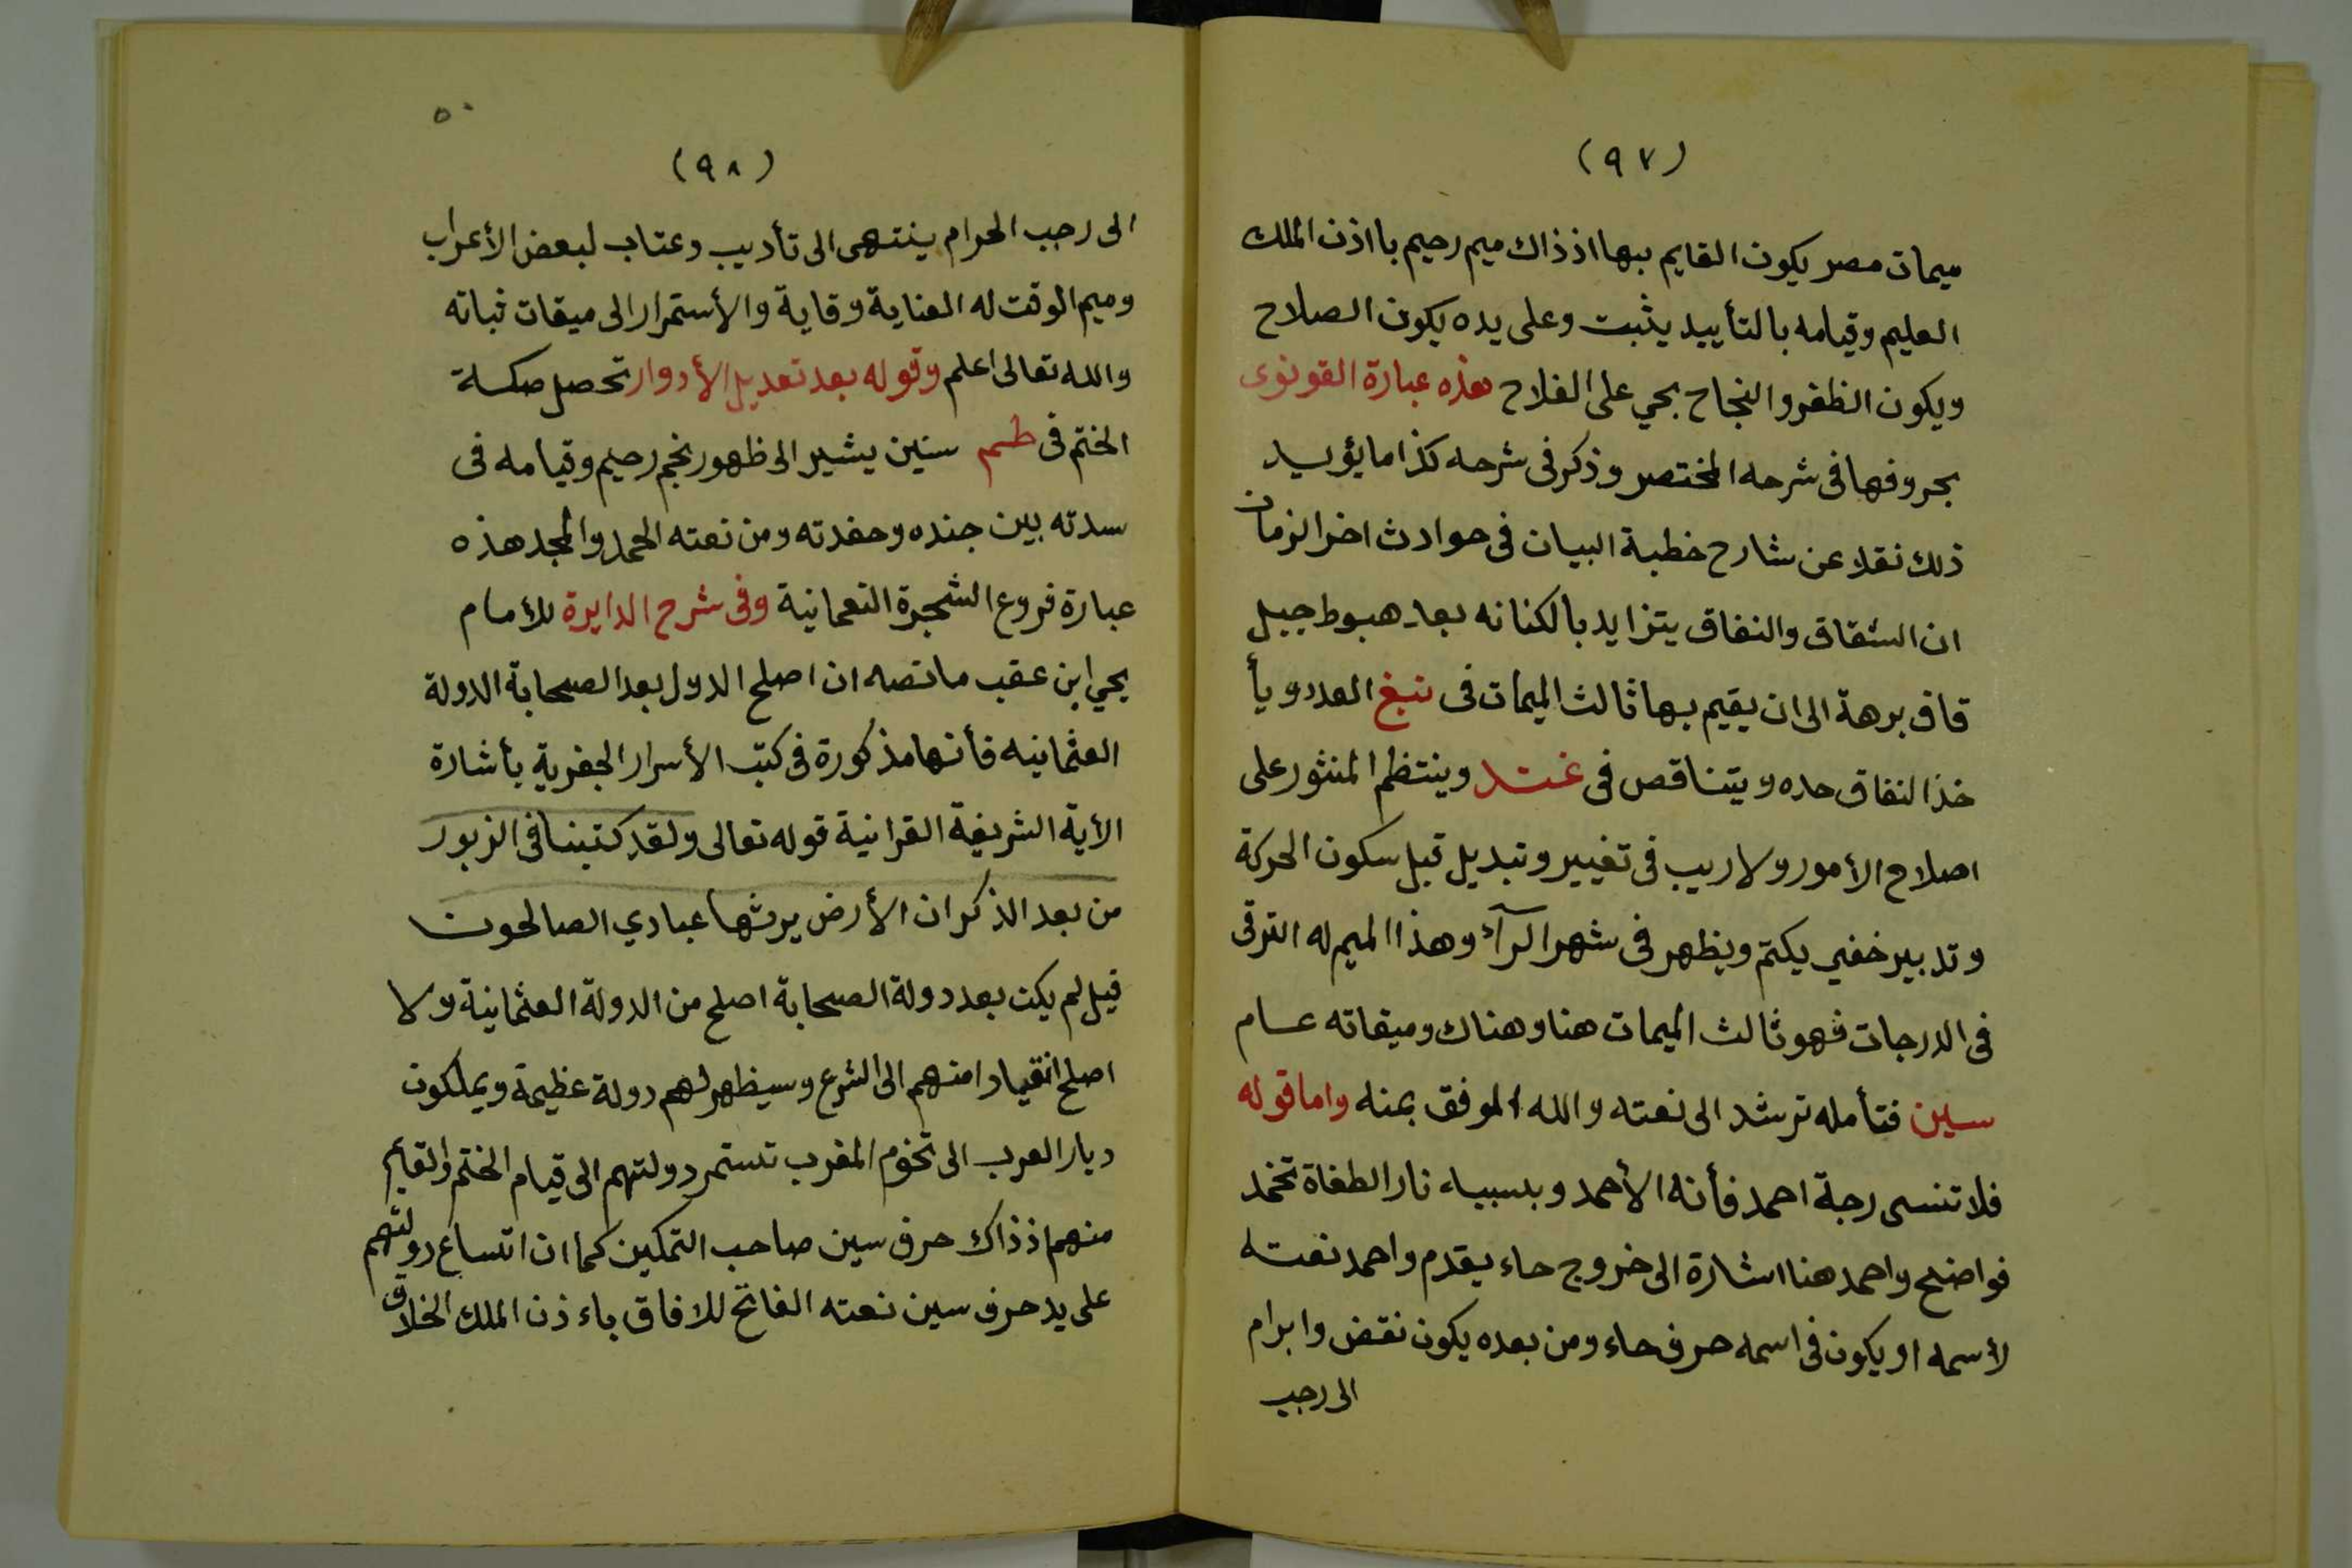 (٩٧)
ميمات مصر يكون القايم بها اذ ذاك ميم رحيم باذن الملك
العليم وقيامه بالتأييد يثبت وعلى يده يكون الصلاح
ويكون الظفر والنجاح بحي على الفلاح هذه عبارة القونوى
بحروفها فى شرحه المختصر وذكر فى شرحه كذا ما يؤيد
ذلك نقلا عن شارح خطبة البيان فى حوادث اخر الزمان
ان الشقاق والنفاق يتزايد بالكنانه بعد هبوط جبل
قاف برهة الى ان يقيم بها ثالث الميمات فى العدد ويأ
خذ النفاق حده ويتناقص فى وينتظم المنثور على
اصلاح الأمور ولا ريب فى تغيير وتبديل قبل سكون الحركة
وتدبير خفي يكتم ويظهر فى شهر الرآء وهذا الميم له الترقى
فى الدرجات فهو ثالث الميمات هنا وهناك وميقاته عام
سين فتأمله ترشد الى نعته والله الموفق بمنه واما قوله
فلا تنسى رجة احمد فأنه الأحمد وبسببه نار الطغاة تخمد
فواضح واحمد هنا اشارة الى خروج حاء يقدم واحمد نعته
لأسمه او يكون فى اسمه حرف حاء ومن بعده يكون نقض وابرام
الى رجب
٥٠
(٩٨)
الى رجب الحرام ينتهى الى تأديب وعتاب لبعض الأعراب
وميم الوقت له العناية وقاية والأستمرار الى ميقات ثباته
والله تعالى اعلم وقوله بعد تعديل الأدوار تحصل صكسة
الختم فى طسم سنين يشير الى ظهور نجم رحيم وقيامه فى
سدته بين جنده وحفدته ومن نعته الحمد والمجد هذه
عبارة فروع الشجرة النعمانية وفى شرح الدايرة للأمام
يحي ابن عقب ما نصه ان اصلح الدول بعد الصحابة الدولة
العثمانيه فأنها مذكورة فى كتب الأسرار الجفرية بأشارة
الأية الشريفة القرانية قوله تعالى ولقد كتبنا فى الزبور
من بعد الذكر ان الأرض يرثها عبادي الصالحون
قيل لم يكن بعد دولة الصحابة اصلح من الدولة العثمانية ولا
اصلح انقيادا منهم الى الشرع وسيظهر لهم دولة عظيمة ويملكون
ديار العرب الى تخوم المغرب تستمر دولتهم الى قيام الختم والقايم
منهم اذ ذاك حرف سين صاحب التمكين كما ان اتساع دولتهم
على يد حرف سين نعته الفاتح للافاق باءذن الملك الخلاق